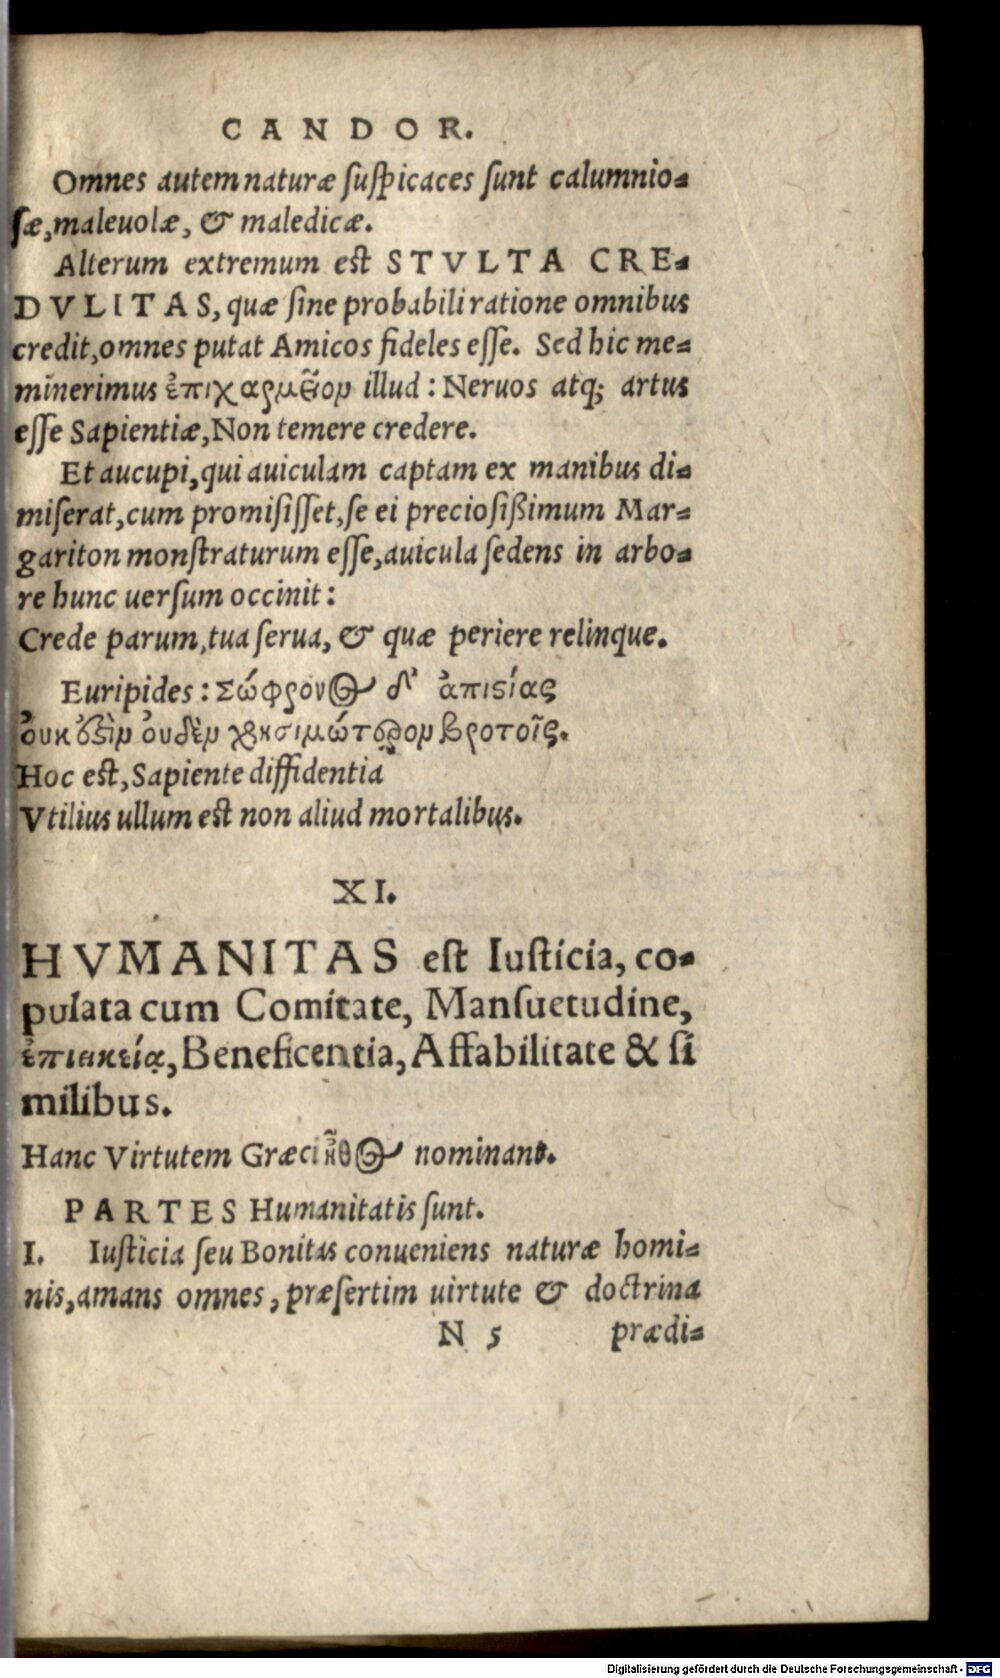 CANDOR.
Omnes autem naturæ suspicaces sunt calumnio-
sæ, maleuolæ, & maledicæ.
Alterum extremum est STVLTA CRE-
DVLITAS, quæ sine probabili ratione omnibus
credit, omnes putat Amicos fideles esse. Sed hic me-
minerimus ἐπιχαρμειον illud: Neruos atq; artus
esse Sapientiæ, Non temere credere.
Et aucupi, qui auiculam captam ex manibus di-
miserat, cum promisisset, se ei preciosißimum Mar-
gariton monstraturum esse, auicula sedens in arbo-
re hunc uersum occinit:
Crede parum, tua serua, & quæ periere relinque.
Euripides: Σώφρονος δ' ἀπιστίας
οὐκ ἔστιν οὐδὲν χρησιμώτερον βροτοῖς.
Hoc est, Sapiente diffidentia
Vtilius ullum est non aliud mortalibus.
XI.
HVMANITAS est Iusticia, co-
pulata cum Comitate, Mansuetudine,
ἐπιεικείᾳ, Beneficentia, Affabilitate & si
milibus.
Hanc Virtutem Græci ἦθος nominant.
PARTES Humanitatis sunt.
I. Iusticia seu Bonitas conueniens naturæ homi-
nis, amans omnes, præsertim uirtute & doctrina
N 5 prædi-
Digitalisierung gefördert durch die Deutsche Forschungsgemeinschaft - DFG